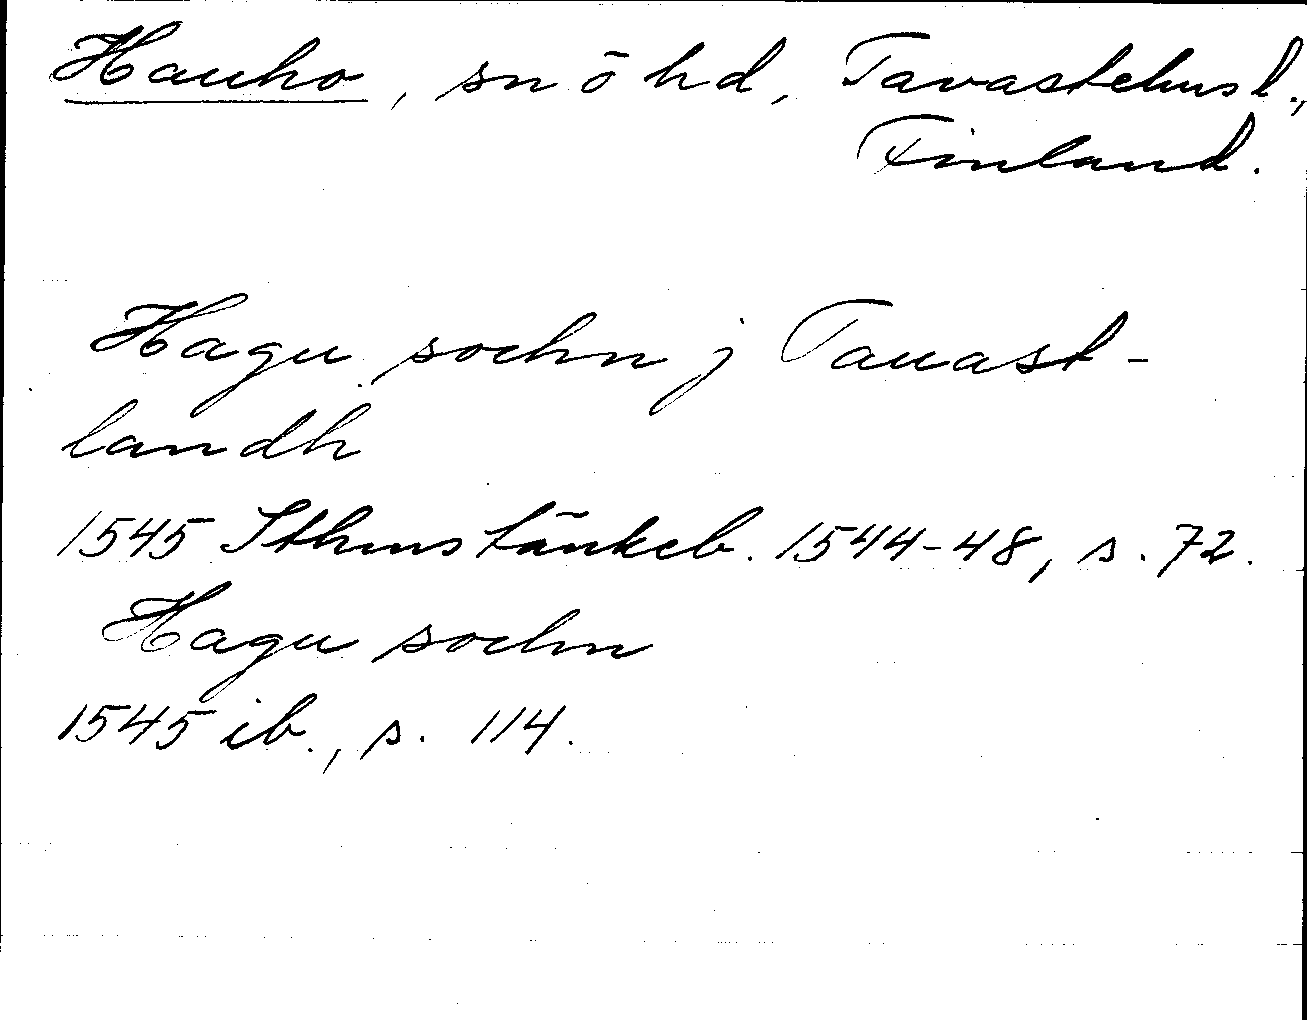 Hauho, sn ö hd, Tavastehus l.,
Finland.
Hagu sochn j Tauast-
landh
1545 Sthms tänkeb. 1544-48, s. 72.
Hagu sochn
1545 ib., s. 114.